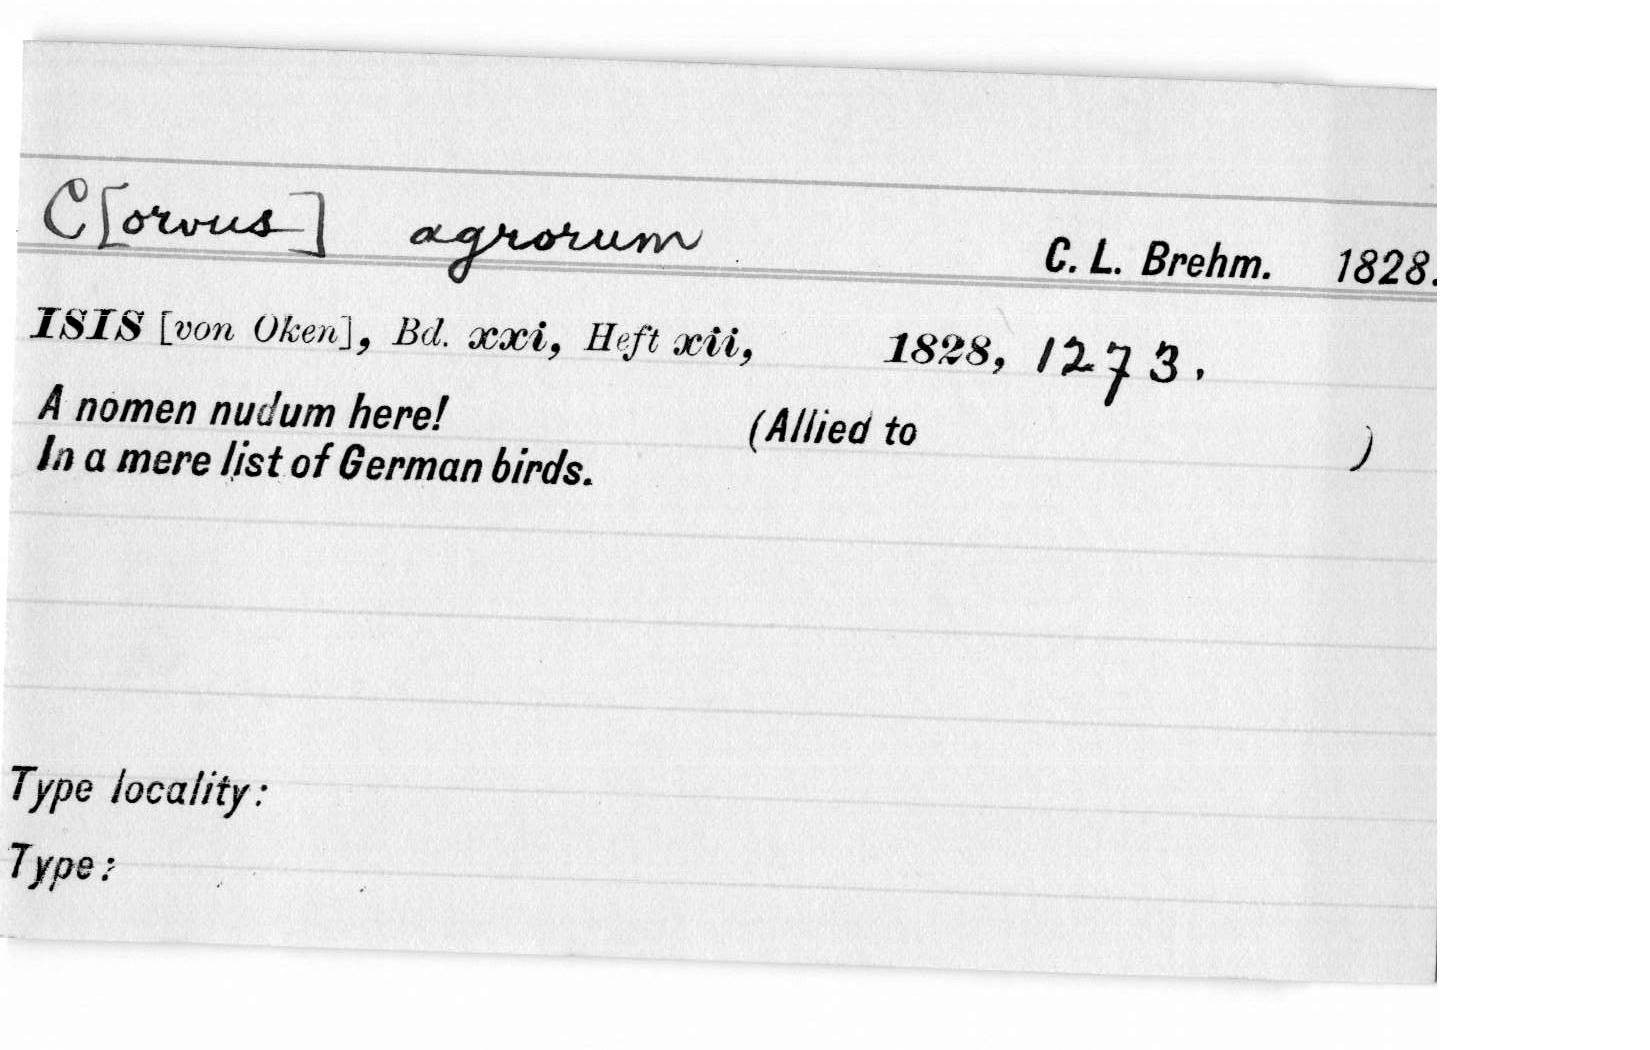 C[orvus] agrorum C. L. Brehm. 1828.
ISIS [von Oken], Bd. xxi, Heft xii, 1828, 1273.
A nomen nudum here! (Allied to )
In a mere list of German birds.
Type locality:
Type: